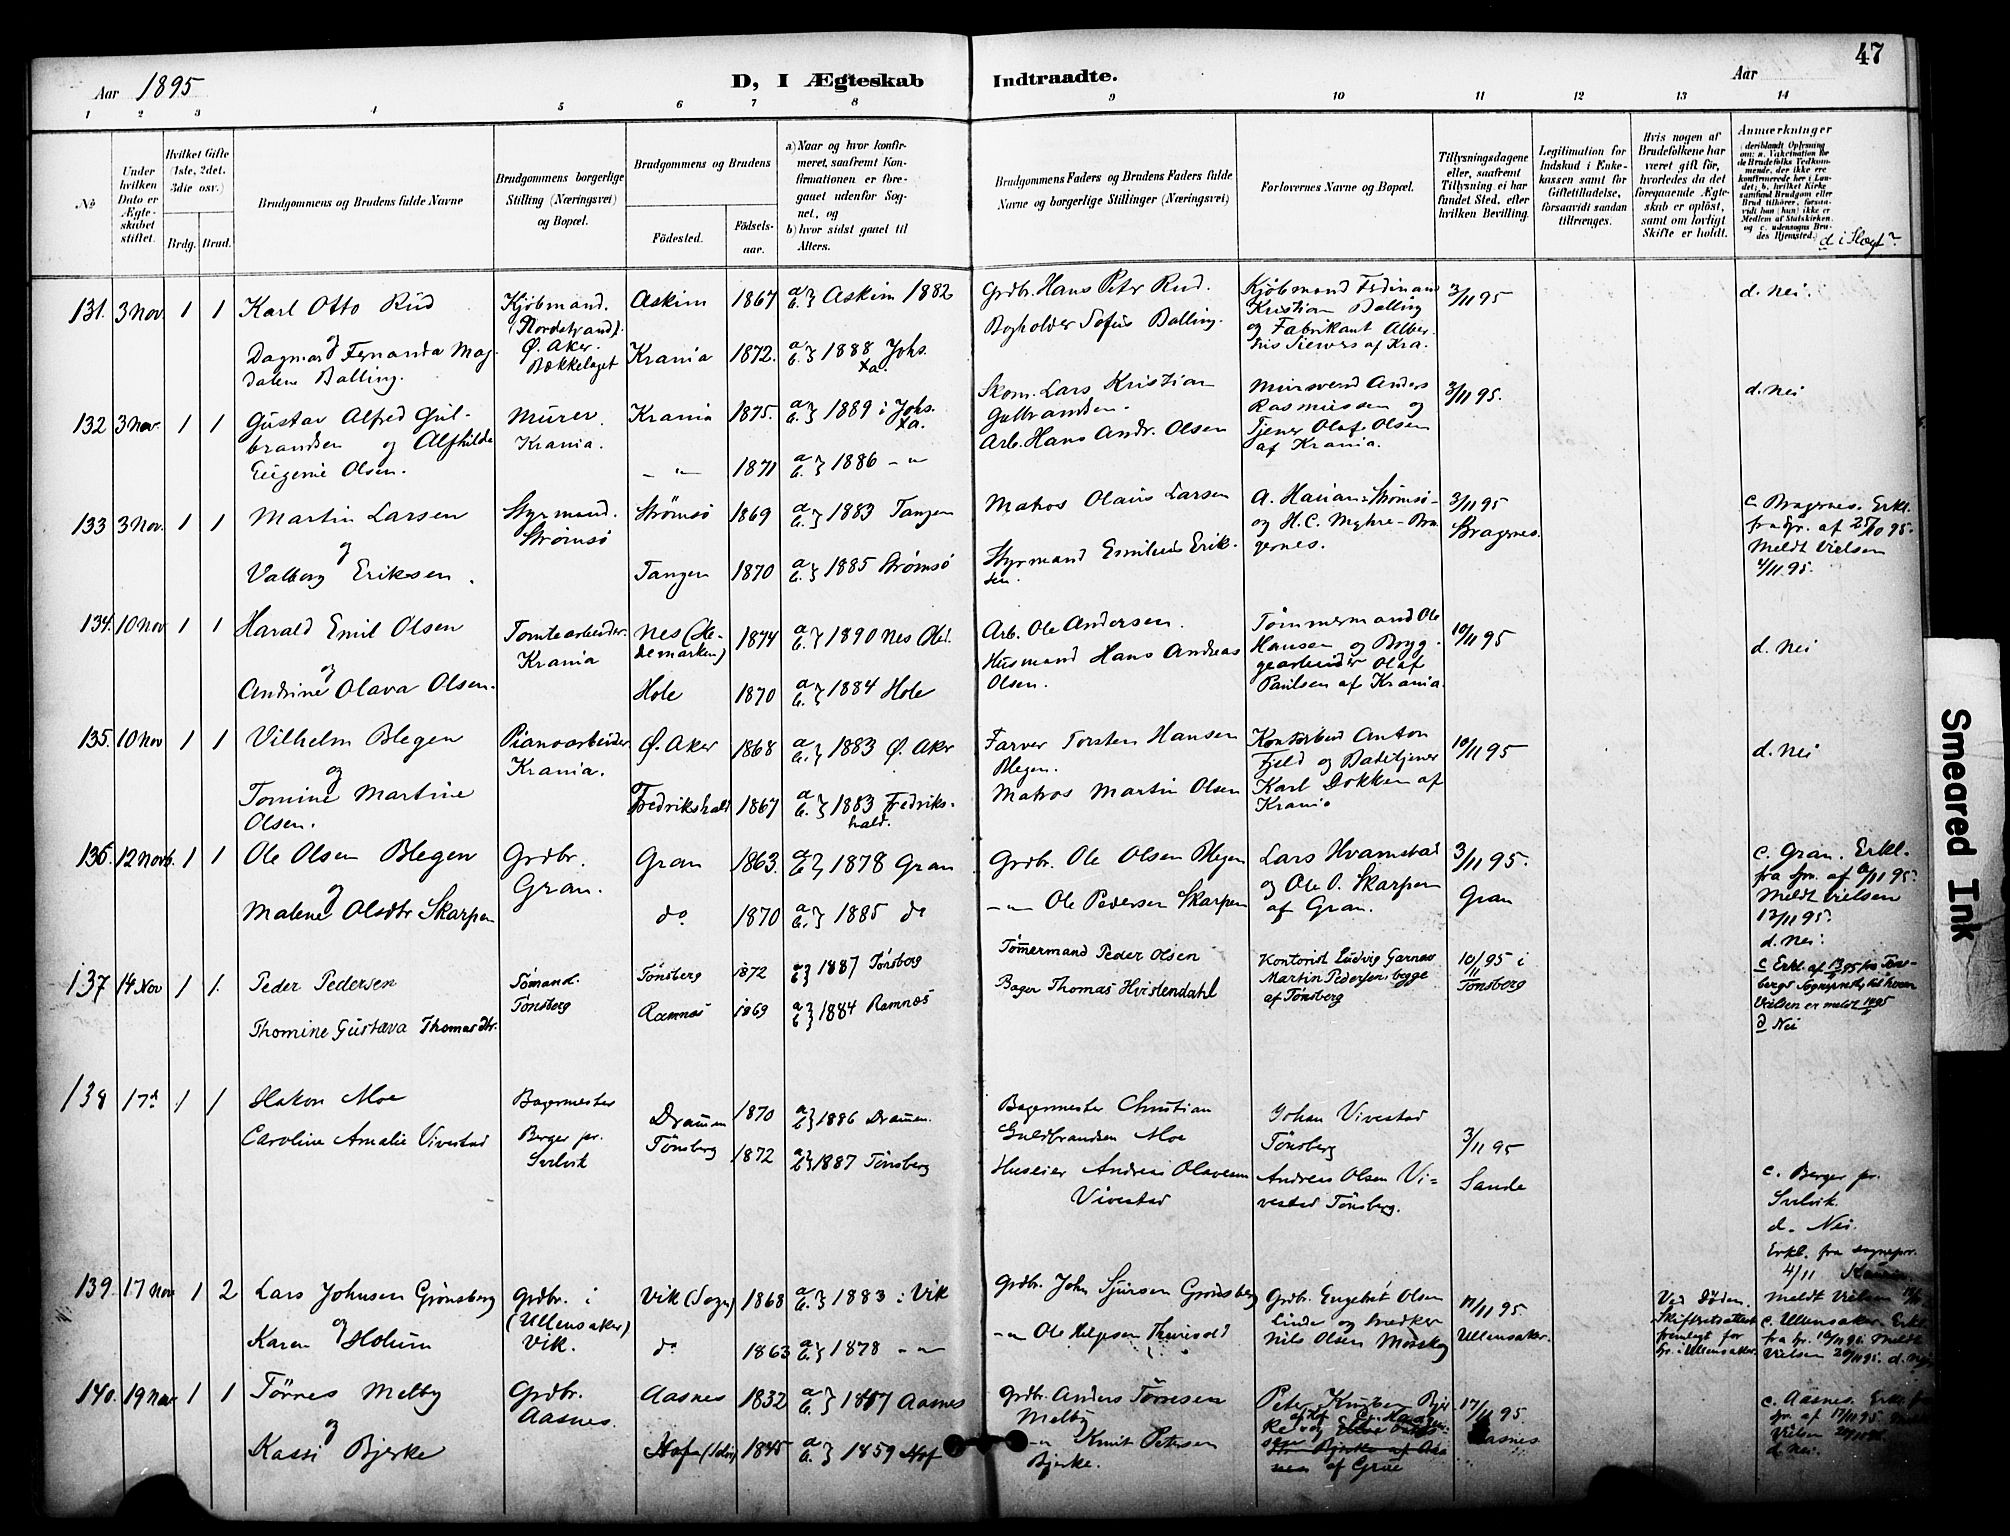 47
Aar 1895
D, I Ægteskab Indtraadte.
Aar
1 2 3 4 5 6 7 8 9 10 11 12 13 14
No
Under hvilken Dato er Ægteskabet stiftet.
Hvilket Gifte (1ste, 2det, 3die osv.)
Brdg. Brud.
Brudgommens og Brudens fulde Navne
Brudgommens borgerlige Stilling (Næringsvei) og Bopæl.
Brudgommens og Brudens
Fødested.
Fødselsaar.
a) Naar og hvor konfirmeret, saafremt Konfirmationen er foregaaet udenfor Sognet, og
b) hvor sidst gaaet til Alters.
Brudgommens Faders og Brudens Faders fulde Navne og borgerlige Stillinger (Næringsvei)
Forlovernes Navne og Bopæl.
Tillysningsdagene eller, saafremt Tillysning ei har fundet Sted, efter hvilken Bevilling.
Legitimation for Indskud i Enkekassen samt for Giftetilladelse, forsaavidt saadan tiltrænges.
Hvis nogen af Brudefolkene har været gift før, hvorledes da det foregaaende Ægteskab er opløst, samt om lovligt Skifte er holdt.
Anmærkninger (deriblandt Oplysning om: a. Vakcination for de Brudefolks Vedkommende, der ikke ere konfirmerede her i Landet; b. hvilket Kirkesamfund Brudgom eller Brud tilhører, forsaavidt han (hun) ikke er Medlem af Statskirken, og c. udensogns Brudes Hjemsted.)
d. i Slægt?
131. 3 Nov. 1 1 Karl Otto Rud Kjøbmand. Askim 1867 a/b} Askim 1882 Grdbr. Hans Peter Rud. Kjøbmand Ferdinand 3/11 95 d. Nei.
og (Nordstrand). Bogholder Sofus Balling. Kristian Balling
Dagmar Fernanda Mag- Ø. Aker. Krania 1872. a/b} 1888 Johs. og Fabrikant Alber-
dalene Balling. Bækkelaget Xa.
132 3 Nov. 1 1 Gustav Alfred Gul- Murer. Krania 1875. a/b} 1889 i Johs. Skom. Lars Kristian Mursvend Anders 3/11 95. d. Nei
brandsen og Alfhilde Krania. Xa. Gulbrandsen. Rasmussen og
Eugenie Olsen. - " - 1871 a/b} 1886 - " Arb. Hans Andr. Olsen Tjener Olaf Olsen
af Krania.
133 3 Nov. 1 1 Martin Larsen Styrmand. Strömsö 1869 a/b} 1883 Tangen Matros Olaus Larsen 3/11 95 c. Bragernes. Erkl.
og Strömsö og H.C. Myhre - Bra- Bragnes. fra Spr. af 25/10 95.
Valborg Eriksen. Tangen 1870 a/b} 1885 Strømsö Styrmand Erik- gernes. Meldt Vielsen
sen. 4/11 95.
134. 10 Nov 1 1 Harald Emil Olsen Tomtearbeider. Nes (He- 1874 a/b} 1890 Nes Hed. Arb. Ole Andersen. Tømmermand Ole 10/11 95 d. Nei
og Krania demarken) Husmand Hans Andreas Hansen og Bryg-
Andrine Olava Olsen. Hole 1870 a/b} 1884 Hole Olsen. gearbeider Olaf
Paulsen af Krania.
135. 10 Nov 1 1 Vilhelm Blegen Pianoarbeider Ø. Aker 1868 a/b} 1883 Ø. Aker Farver Torsten Hansen Kontorbud Anton 10/11 95 d. Nei
og Krania. Blegen. Fjeld og Badetjener
Tomine Martine Fredrikshald 1867 a/b} 1883 Fredriks- Matros Martin Olsen Karl Dokken af
Olsen. hald. Krania
136. 12 Novb. 1 1 Ole Olsen Blegen Grdbr. Gran 1863. a/b} 1878 Gran Grdbr. Ole Olsen Blegen Lars Hvamstad 3/11 95. c. Gran. Erkl.
og Gran. og Ole O. Skarpen Gran fra Spr. af 11 95.
Malene Olsdtr Skarpen do 1870 a/b} 1885 do - " - Ole Pedersen Skarpen af Gran. Meldt Vielsen
12/11 95.
d. Nei.
137 14 Nov 1 1. Peder Pedersen Sømand. Tönsberg 1872 a/b} 1887 Tönsberg Tømmermand Peder Olsen Kontorist Ludvig 10/11 95 i c Erkl. af
Tönsberg Martin Pedersens begge Tönsberg
Thomine Gustava Thomasdtr. Ramnæs 1869 a/b} 1884 Ramnæs Bager Thomas Hvistendahl af Tønsberg Vielsen er meldt
d Nei
138 17d 1 1 Hakon Moe Bagermester Drammen 1870 a/b} 1886 Drammen. Bagermester Christian Johan Vivestad 3/11 95
Caroline Amalie Vivestad Berger pr. Tönsberg 1872 a/b} 1887 Tönsberg Guldbrandsen Moe Tönsberg Sande
Svelvik Huseier Andreas Olavesen Andreas Olsen Vi- c. Berger pr.
Vivestad vestad Tönsberg. Svelvik.
d. Nei.
Erkl. fra sognepr.
4/11
139. 17 Nov 1 2 Lars Johnsen Grönsberg Grdbr. i Vik (Sogn) 1868 a/b} 1883 i Vik Grdbr. John Sjursen Grönsberg Grdbr. Engebret Olsen 17/11 95. Ved Døden. Meldt Vielsen
og (Ullensaker) Linde og Ullensaker. Skifteattest c. Ullensaker Erkl.
Karen Holum Vik. do 1863 a/b} 1878 - " - " - Ole Helgesen Nils Olsen fremlagt for
Spr. i Ullensaker. Vielsen 20/11 95. d. Nei
140. 19 Nov 1 1 Tørres Melby Grdbr. Aasnes 1832 a/b} Aasnes Grdbr. Anders Tørresen Peter Knutsen Bjer- 17/11 95. c. Aasnes. Erkl. fra
og Aasnes. Melby Aasnes Spr. af 17/11 95.
Kassi Bjerke Hof (Solør) 1845 a/b} 1859 Hof - " Knut Petersen af Grue Vielsen
Bjerke. d. Nei.
Smeared Ink